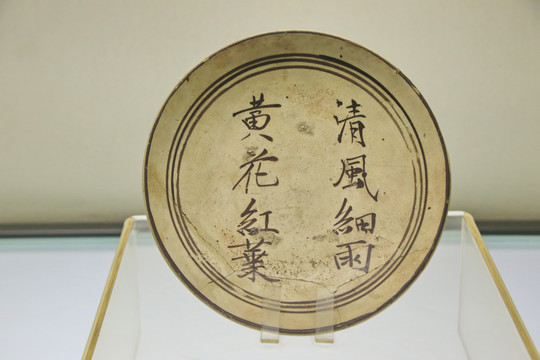 清風細雨
黃花紅葉